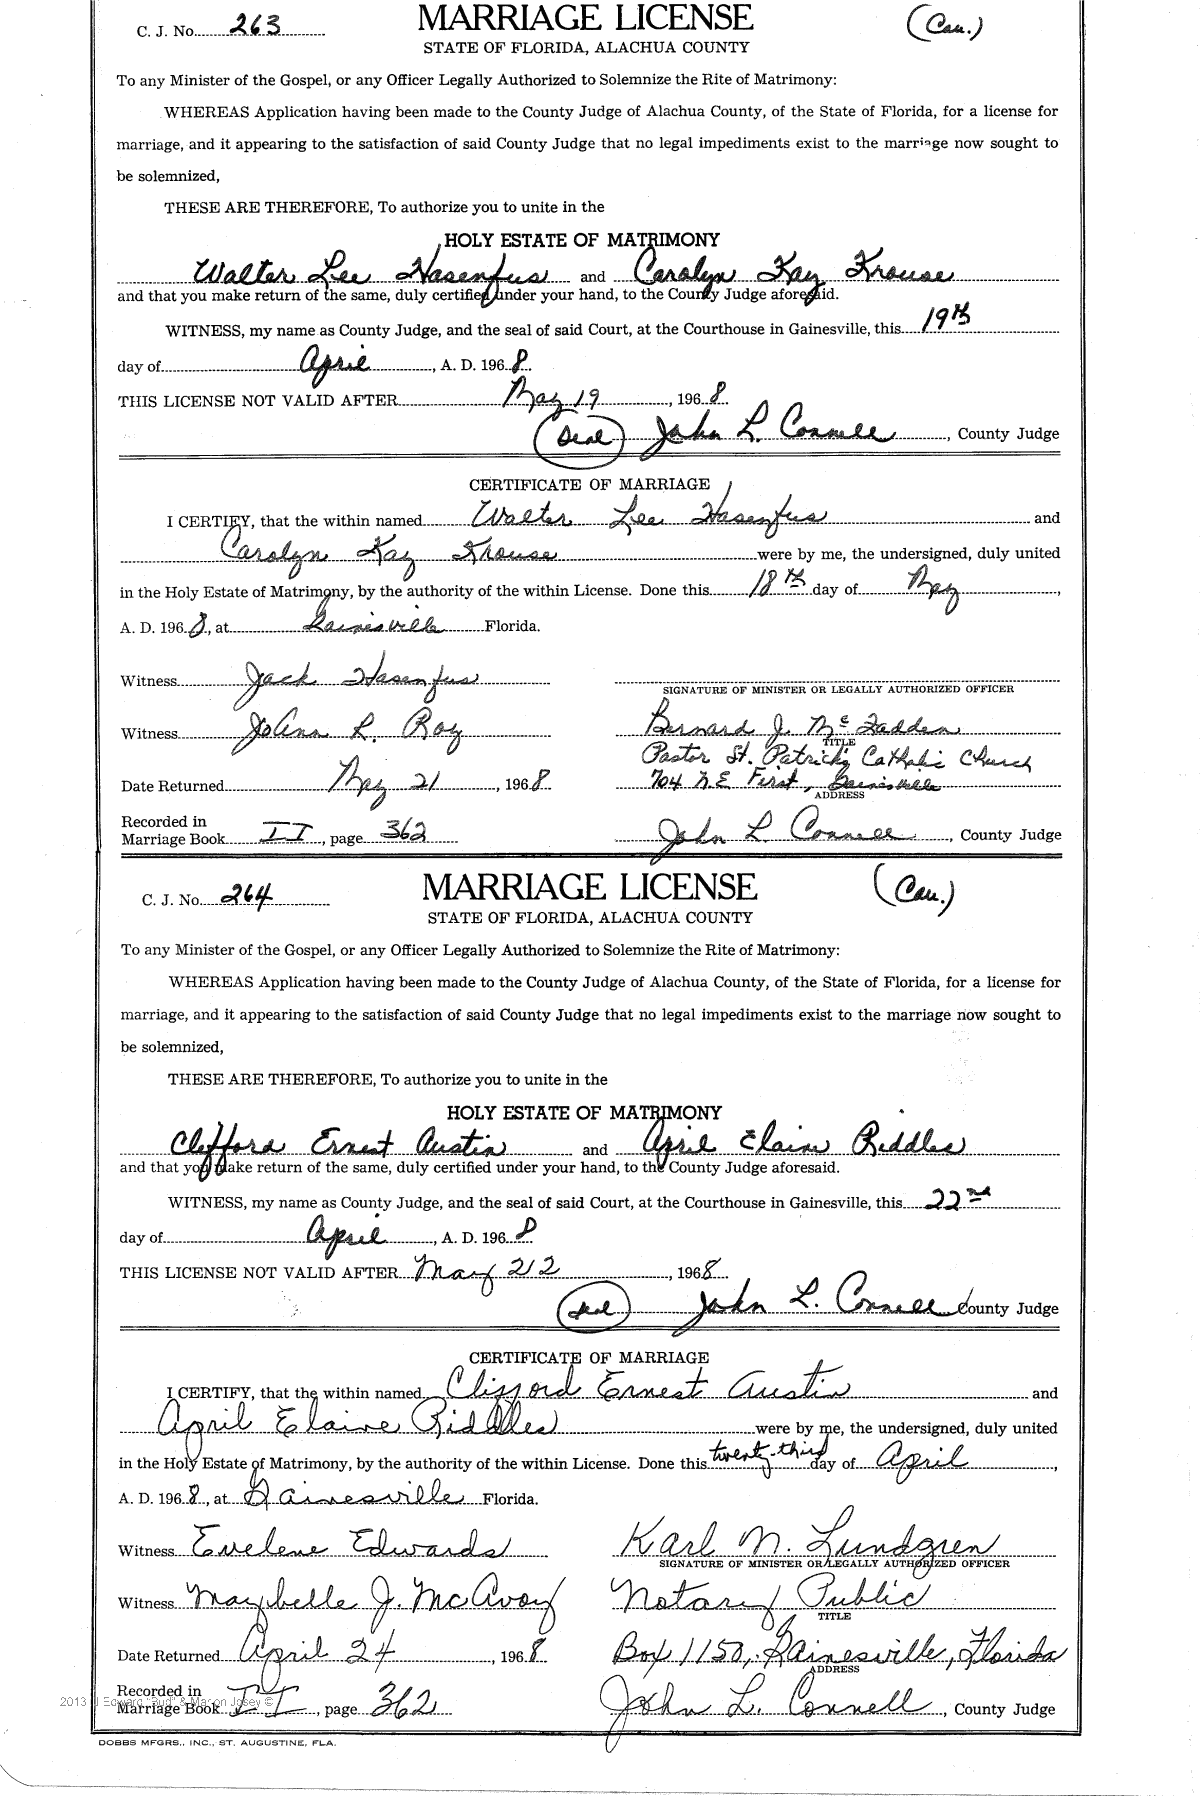 C. J. No. 263 MARRIAGE LICENSE (Cau.)
STATE OF FLORIDA, ALACHUA COUNTY
To any Minister of the Gospel, or any Officer Legally Authorized to Solemnize the Rite of Matrimony:
WHEREAS Application having been made to the County Judge of Alachua County, of the State of Florida, for a license for
marriage, and it appearing to the satisfaction of said County Judge that no legal impediments exist to the marriage now sought to
be solemnized,
THESE ARE THEREFORE, To authorize you to unite in the
HOLY ESTATE OF MATRIMONY
Walter Lee Hasenfus and Carolyn Kay Krouse
and that you make return of the same, duly certified under your hand, to the County Judge aforesaid.
WITNESS, my name as County Judge, and the seal of said Court, at the Courthouse in Gainesville, this 19th
day of April, A. D. 1968.
THIS LICENSE NOT VALID AFTER May 19, 1968.
(Seal) John L. Connell, County Judge
CERTIFICATE OF MARRIAGE
I CERTIFY, that the within named Walter Lee Hasenfus and
Carolyn Kay Krouse were by me, the undersigned, duly united
in the Holy Estate of Matrimony, by the authority of the within License. Done this 18th day of May,
A. D. 1968, at Gainesville Florida.
Witness Jack Hasenfus
SIGNATURE OF MINISTER OR LEGALLY AUTHORIZED OFFICER
Witness JoAnn R. Roy Bernard J. McFadden
TITLE
Pastor St. Patrick's Catholic Church
Date Returned May 21, 1968. 704 N.E First, Gainesville
ADDRESS
Recorded in
Marriage Book II, page 362 John L. Connell, County Judge
C. J. No. 264 MARRIAGE LICENSE (Cau.)
STATE OF FLORIDA, ALACHUA COUNTY
To any Minister of the Gospel, or any Officer Legally Authorized to Solemnize the Rite of Matrimony:
WHEREAS Application having been made to the County Judge of Alachua County, of the State of Florida, for a license for
marriage, and it appearing to the satisfaction of said County Judge that no legal impediments exist to the marriage now sought to
be solemnized,
THESE ARE THEREFORE, To authorize you to unite in the
HOLY ESTATE OF MATRIMONY
Clifford Ernest Austin and April Elaine Riddles
and that you make return of the same, duly certified under your hand, to the County Judge aforesaid.
WITNESS, my name as County Judge, and the seal of said Court, at the Courthouse in Gainesville, this 22nd
day of April, A. D. 1968.
THIS LICENSE NOT VALID AFTER May 22, 1968.
(Seal) John L. Connell County Judge
CERTIFICATE OF MARRIAGE
I CERTIFY, that the within named Clifford Ernest Austin and
April Elaine Riddles were by me, the undersigned, duly united
in the Holy Estate of Matrimony, by the authority of the within License. Done this twenty-third day of April,
A. D. 1968, at Gainesville Florida.
Witness Evelene Edwards Karl N. Lundgren
SIGNATURE OF MINISTER OR LEGALLY AUTHORIZED OFFICER
Witness Maybelle J. McAvoy Notary Public
TITLE
Date Returned April 24, 1968. Box 1150, Gainesville, Florida
ADDRESS
Recorded in
2013 J Edward "Bud" & Marion Josey ©
Marriage Book II, page 362 John L. Connell, County Judge
DOBBS MFGRS., INC., ST. AUGUSTINE, FLA.